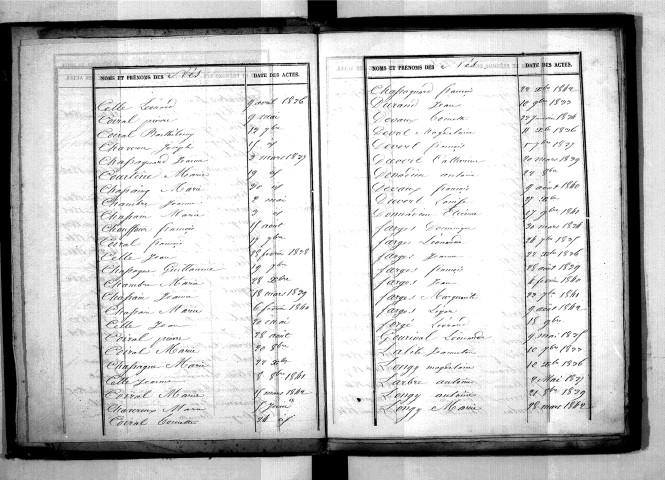 NOMS ET PRÉNOMS DES Nés DATE DES ACTES.
Celle Léonard 9 avril 1836
Corral pierre 9 mai
Corral Barthélemy 12 9bre
Charvin Joseph 15 id
Chapagnard Jeanne 3 mars 1837
Courteine Marie 19 id
Chapaing Marie 30 id
Chambre Jeanne 2 mai
Chapain Marie 3 id
Chauffour françois 15 aout
Corral françois 17 9bre
Celle Jean 28 février 1838
Chapagne Guillaume 19 7bre
Chambre Marie 28 Xbre
Chapain Jeanne 18 mars 1839
Chapain Marie 6 février 1840
Celle Jean 20 mai
Corral pierre 28 aout
Corral Marie 30 8bre
Chapagne Marie 22 Xbre
Celle Jeanne 8 8bre 1841
Corral Marie 15 mars 1842
Marie 5 Juin
Corral 24 id
NOMS ET PRÉNOMS DES Nés DATE DES ACTES.
Chapagnard françois 22 Xbre 1842
Durand Jean 10 9bre 1833
Devaux 22 1834
Deval Magdelaine 11 Xbre 1836
Devert françois 1 7bre 1837
Duvert Catherine 20 mars 1839
Donadieu antoine 24 8bre
Devaux françois 9 aout 1840
Duvert Louise 27 Xbre
Etienne 17 9bre 1841
farges Dominique 20 mars 1834
farges Léonarde 26 7bre 1835
farges Jeanne 22 Xbre 1836
farges françois 28 aout 1839
farges Jean 6 février 1840
farges Marguerite 22 7bre 1841
farges 9 aout 1842
forgé Léonard 18 9bre
Léonarde 9 mai 1835
Labile Jeanneton 10 9bre 1833
Longy magdelaine 10 Xbre 1836
Larbre antoine 2 Mai 1837
Longy antoine 21 8bre 1839
Longy Marie 28 mars 1842